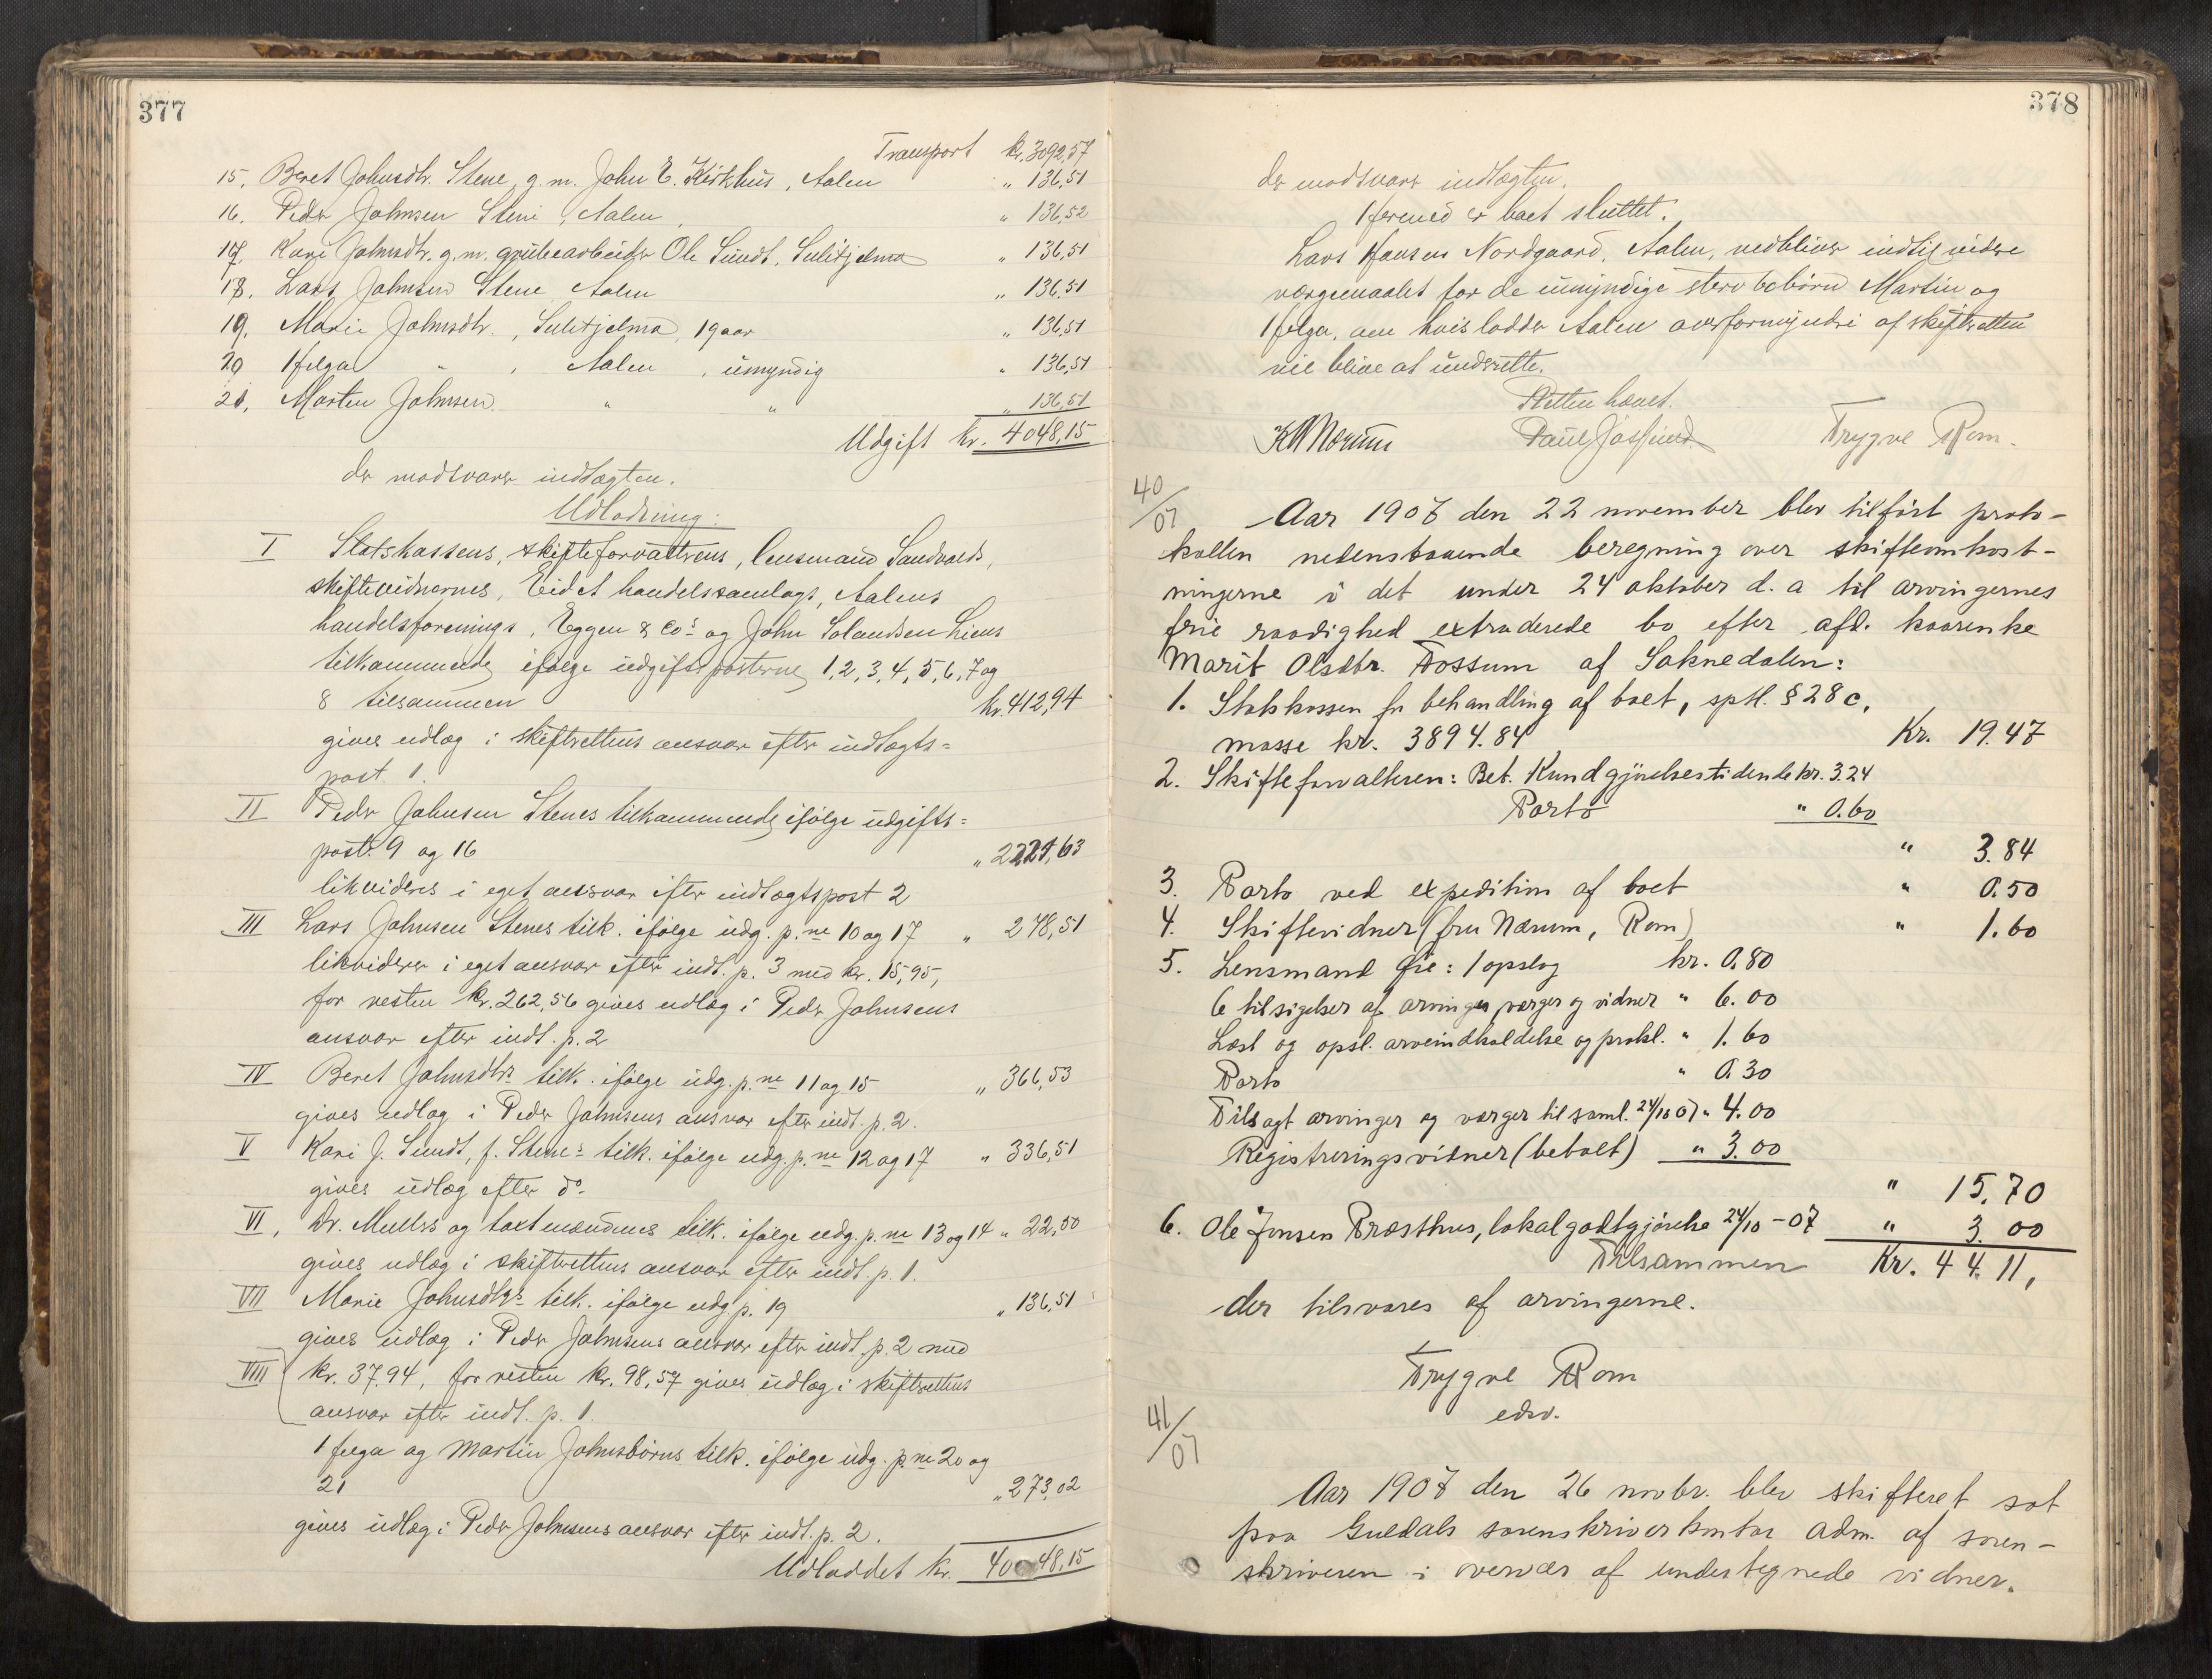 377
Transport kr. 3092,57
15, Beret Johnsdtr. Stene, g.m. John E. Kirkhus, Aalen „ 136,51
16. Peder Johnsen Stene, Aalen „ 136,52
17. Kari Johnsdtr. g.m. grubearbeider Ole Sundt, Sulitjelma „ 136,51
18. Lars Johnsen Stene Aalen „ 136,51
19. Marie Johnsdtr., Sulitjelma, 19 aar „ 136,51
20 Helga „ , Aalen , umyndig „ 136,51
21, Morten Johnsen „ „ „ 136,51
Udgift kr. 4048,15
der modsvarer indtægten.
Udlodning:
I Statskassens, skifteforvalterens, lensmand Sandvolds,
skiftevidnernes, Eidet handelssamlags, Aalens
handelsforenings, Eggen & Co's og John Solandsen Liens
tilkommende ifølge udgiftsposterne 1, 2, 3, 4, 5, 6, 7 og
8 tilsammen kr. 412,94
gives udlæg i skifterettens ansvar efter indtægts=
post 1.
II Peder Johnsen Stenes tilkommende ifølge udgifts=
post. 9 og 16 „ 2221,63
likvideres i eget ansvar efter indtægtspost 2
III Lars Johnsen Stenes tilk. ifølge udg. p. ne 10 og 17 „ 278,51
likviderer i eget ansvar efter indt. p. 3 med kr. 15,95,
for resten kr. 262,56 gives udlæg i Peder Johnsens
ansvar efter indt. p. 2
IV Beret Johnsdtrs tilk. ifølge udg. p. ne 11 og 15 „ 366,53
gives udlæg i Peder Johnsens ansvar efter indt. p. 2.
V Kari J. Sundt, f. Stene's tilk. ifølge udg. p. ne 12 og 17 „ 336,51
gives udlæg efter do.
VI, Dr. Mullers og taxtmændenes tilk. ifølge udg. p. ne 13 og 14 „ 22,50
gives udlæg i skifterettens ansvar efter indt. p. 1.
VII Marie Johnsdtrs tilk. ifølge udg. p. 19 „ 136,51
gives udlæg i Peder Johnsens ansvar efter indt. p. 2 med
VIII kr. 37.94, for resten kr. 98,57 gives udlæg i skifterettens
ansvar efter indt. p. 1.
Helga og Martin Johnsbørns tilk. ifølge udg. p. ne 20 og
21 „ 273,02
gives udlæg i Peder Johnsens ansvar efter indt. p. 2.
Udloddet kr. 4048,15
378
der modsvarer indtægten.
Hermed er boet sluttet.
Lars Hansen Nordgaard, Aalen, vedbliver indtil videre
værgemaalet for de umyndige stervbobørn Martin og
Helga, om hvis lodder Aalen overformynderi af skifteretten
vil blive at underrette.
Retten hævet.
K Nærum Paul Josfjord Trygve Rom.
40/07
Aar 1907 den 22 november blev tilført proto-
kollen nedenstaaende beregning over skifteomkost-
ningerne i det under 24 oktober d. a til arvingernes
frie raadighed extraderede bo efter afd. kaarenke
Marit Olsdtr. Fossum af Soknedalen:
1. Statskassen for behandling af boet, sptl. § 28 c,
masse kr. 3894.84 Kr. 19.47
2. Skifteforvalteren: Bet. Kundgjørelsestidende kr. 3.24
Porto „ 0.60
„ 3.84
3. Porto ved expedition af boet „ 0.50
4. Skiftevidner (fru Nærum, Rom) „ 1.60
5. Lensmand Øie: 1 opslag kr. 0.80
6 tilsigelser af arvinger værger og vidner „ 6.00
Læst og opsl. arveindkaldelse og prokl. „ 1.60
Porto „ 0.30
Tilsagt arvinger og værger til saml. 24/10 07 „ 4.00
Registreringsvidner (betalt) „ 3.00
„ 15.70
6. Ole Jonsen Præsthus, lokalgodtgjørelse 24/10 – 07 „ 3.00
Tilsammen Kr. 44.11,
der tilsvares af arvingerne.
Trygve Rom
edsv.
41/07
Aar 1907 den 26 novbr. blev skifteret sat
paa Guldals sorenskriverkontor adm. af soren-
skriveren i overvær af undertegnede vidner.